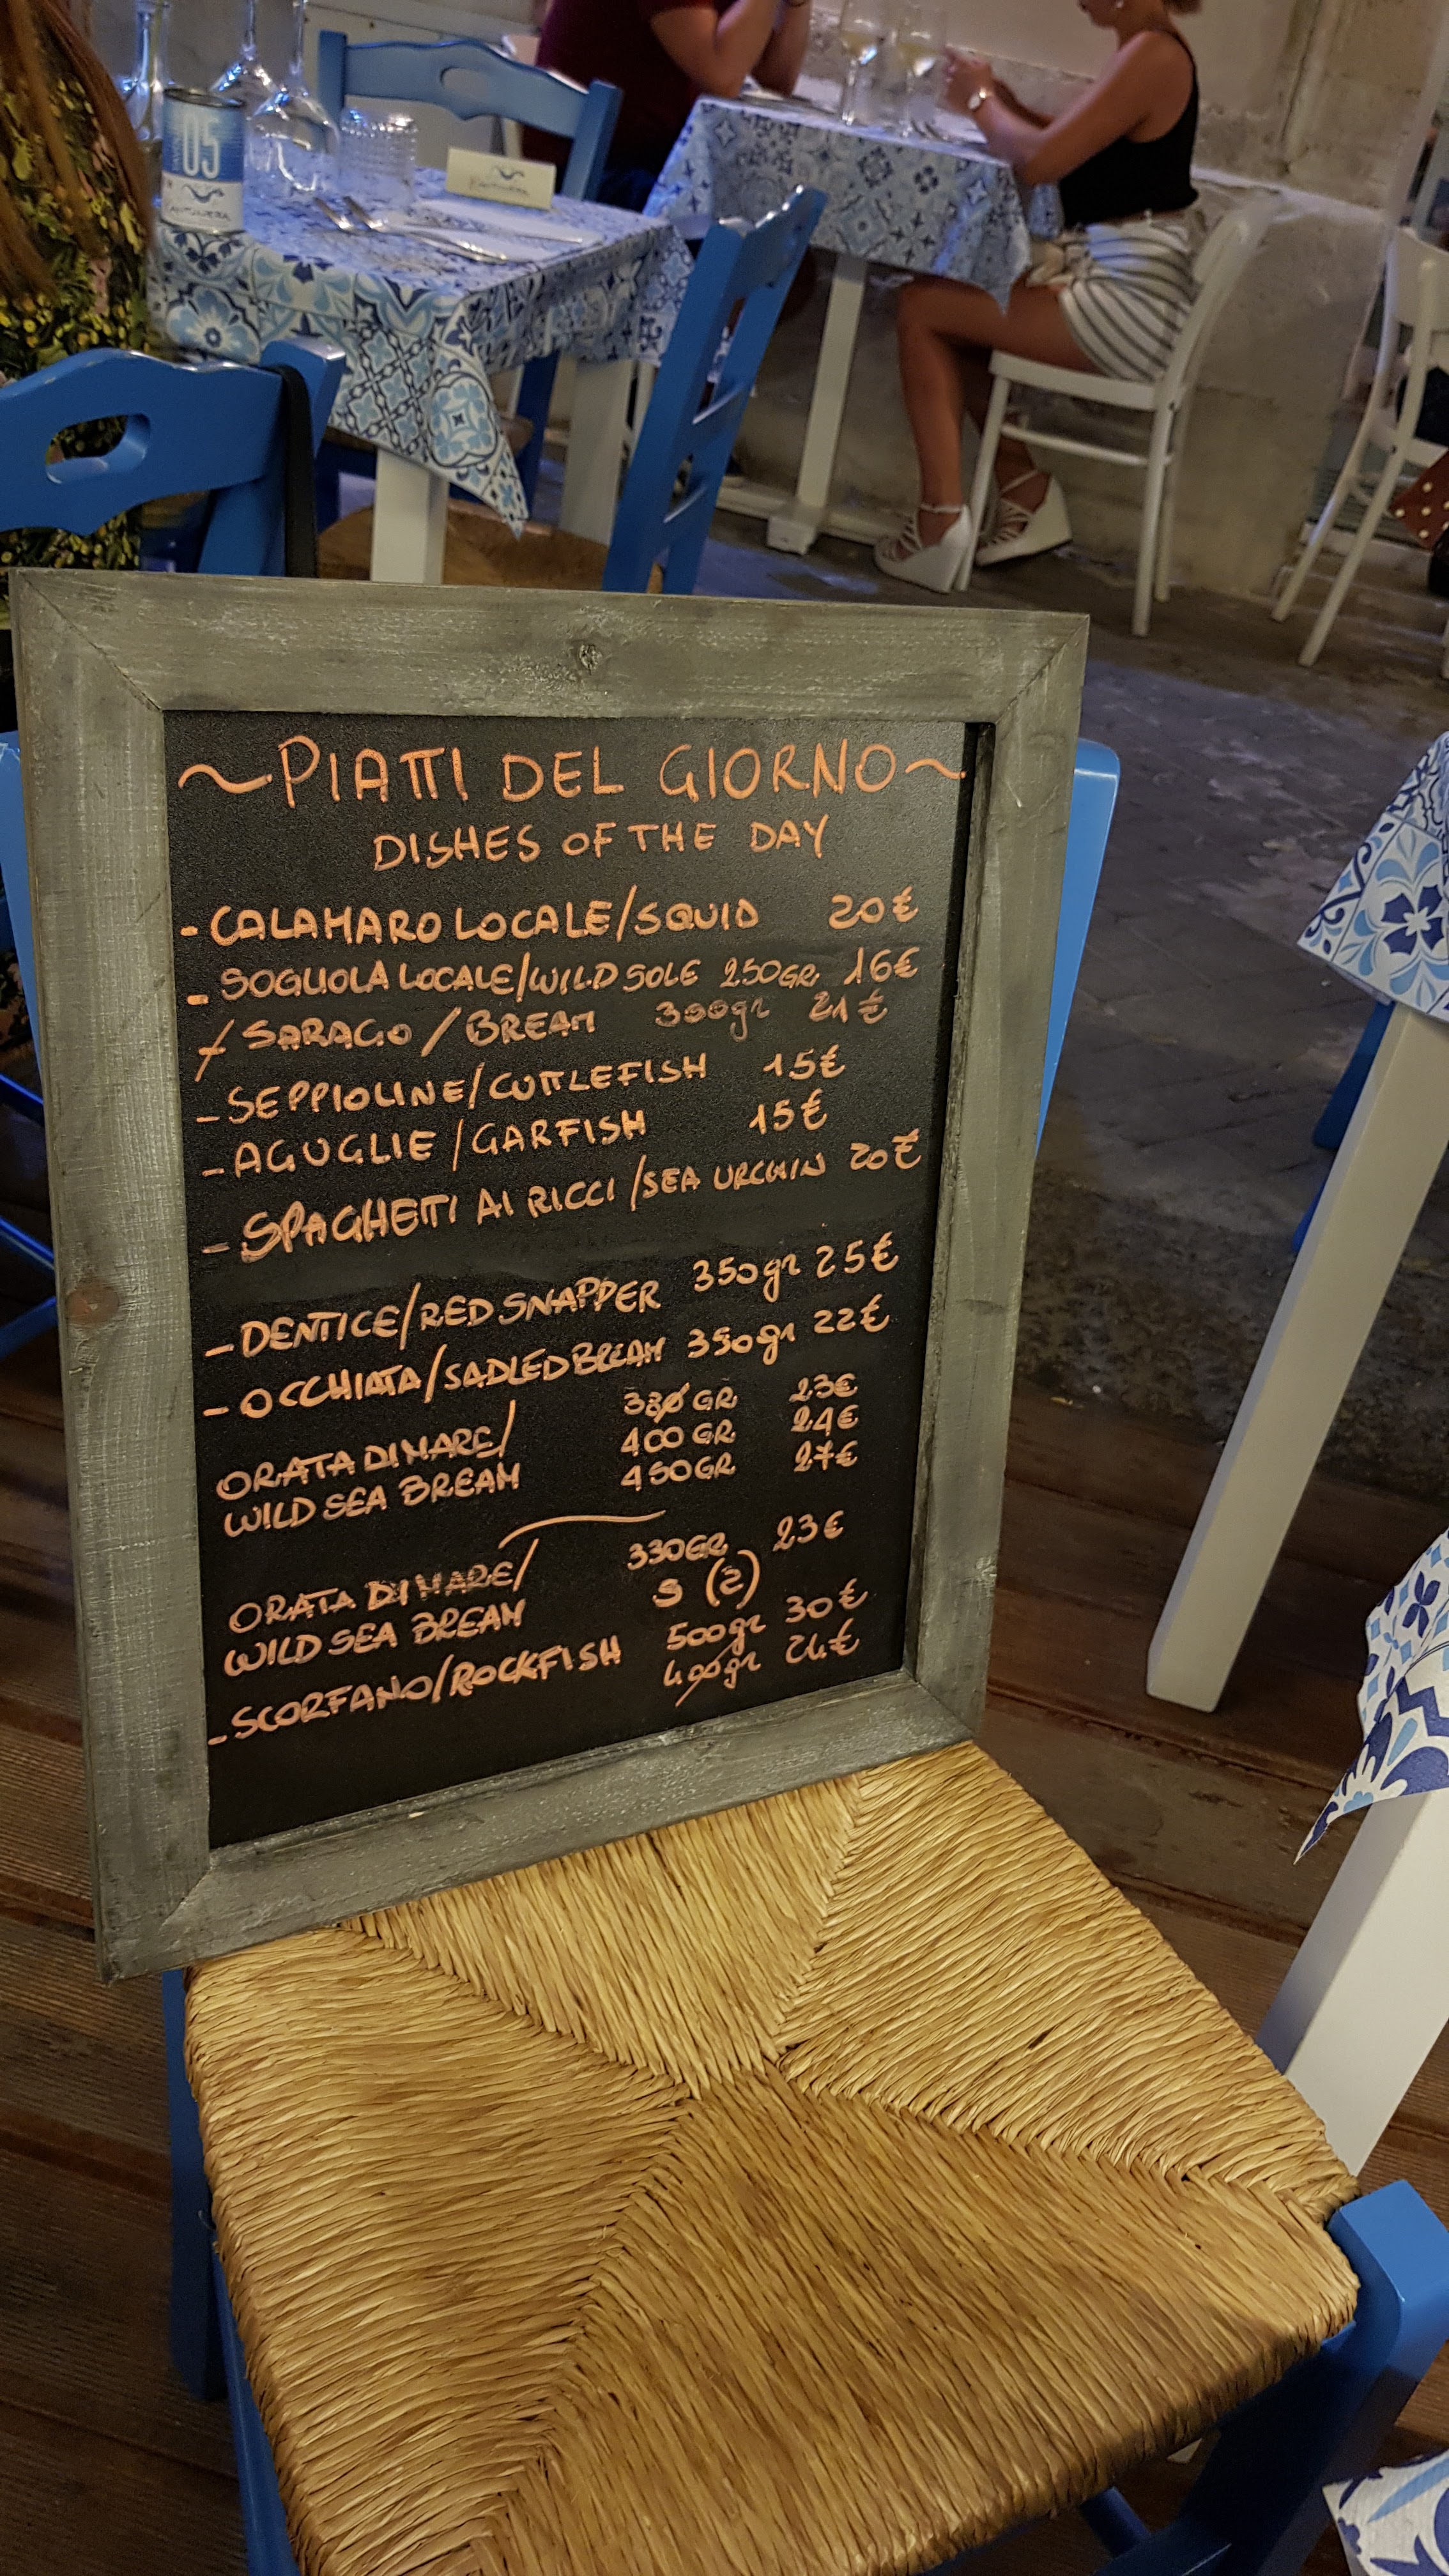 05
KANTUNERA
~PIATTI DEL GIORNO~
DISHES OF THE DAY
- CALAMARO LOCALE/SQUID 20€
- SOGLIOLA LOCALE/WILD SOLE 250GR 16€
/ SARAGO / BREAM 300gr 21€
- SEPPIOLINE/CUTTLEFISH 15€
- AGUGLIE /GARFISH 15€
- SPAGHETTI AI RICCI /SEA URCHIN 20€
- DENTICE/RED SNAPPER 350gr 25€
- OCCHIATA/SADLED BREAM 350gr 22€
330 GR 23€
ORATA DI MARE/ 400 GR 24€
WILD SEA BREAM 450GR 27€
ORATA DI MARE/ 330GR 23€
WILD SEA BREAM S (2)
- SCORFANO/ROCKFISH 500gr 30€
400gr 24€